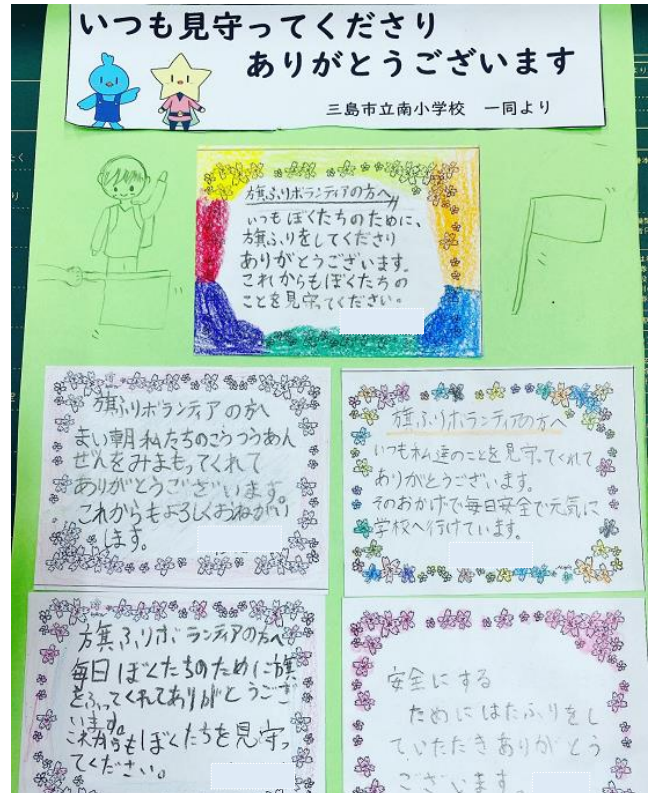 いつも見守ってくださり
ありがとうございます
三島市立南小学校　一同より
旗ふりボランティアの方へ
いつもぼくたちのために、
旗ふりをしてくださり
ありがとうございます。
これからもぼくたちの
ことを見守ってください。
旗ふりボランティアの方へ
まい朝私たちのこうつうあん
ぜんをみまもってくれて
ありがとうございます。
これからもよろしくおねがい
します。
旗ふりボランティアの方へ
いつも私達のことを見守ってくれて
ありがとうございます。
そのおかげで毎日安全で元気に
学校へ行けています。
旗ふりボランティアの方へ
毎日ぼくたちのために旗
をふってくれてありがとうござ
います。
これからもぼくたちを見守っ
てください。
安全にする
ためにはたふりをし
ていただきありがとう
ございます。